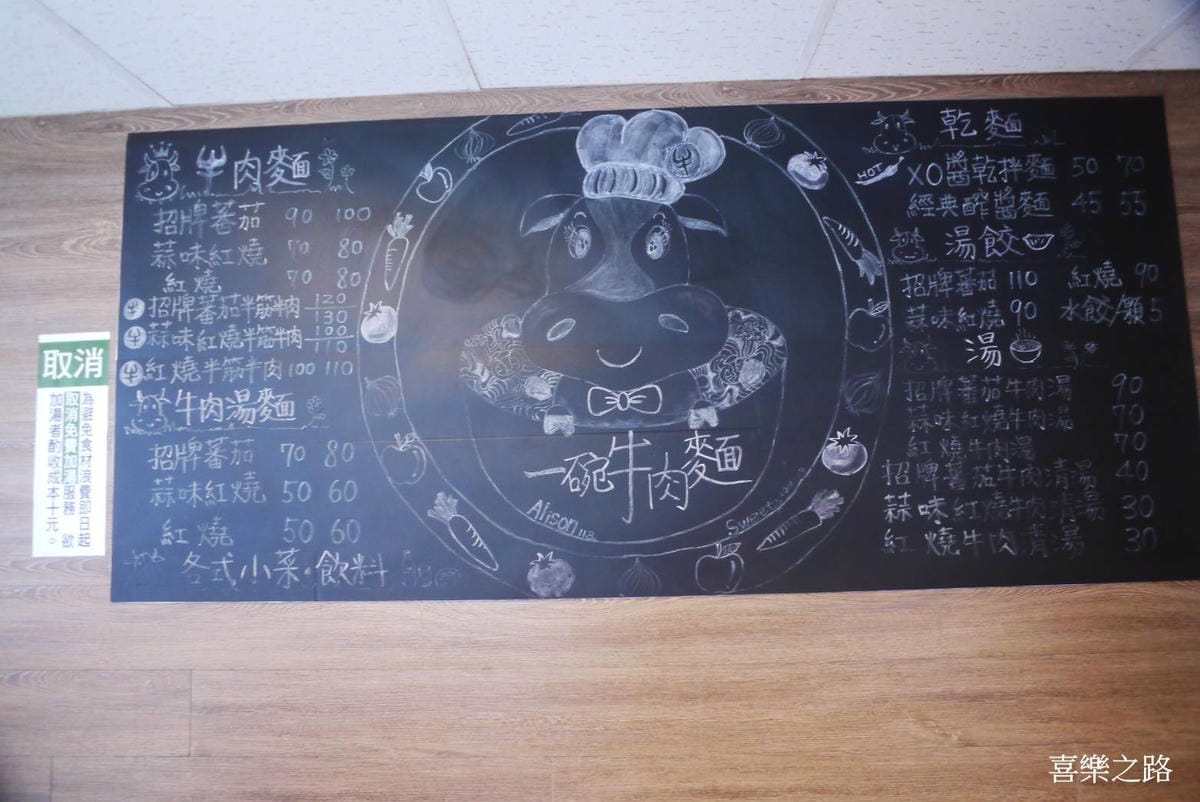 牛肉麵
招牌蕃茄 90 100
蒜味紅燒 70 80
紅燒 70 80
牛 招牌蕃茄半筋半肉 120 130
牛 蒜味紅燒半筋半肉 100 110
牛 紅燒半筋半肉 100 110
牛肉湯麵
招牌蕃茄 70 80
蒜味紅燒 50 60
紅燒 50 60
各式小菜·飲料
牛
一碗牛肉麵
Alison
Sweet
乾麵
HOT
XO醬乾拌麵 50 70
經典酢醬麵 45 55
湯餃
招牌蕃茄 110 紅燒 90
蒜味紅燒 90 水餃/顆 5
湯
招牌蕃茄牛肉湯 90
蒜味紅燒牛肉湯 70
紅燒牛肉湯 70
招牌蕃茄牛肉清湯 40
蒜味紅燒牛肉清湯 30
紅燒牛肉清湯 30
取消
為避免食材浪費即日起
取消免費加湯服務 欲
加湯者酌收成本十元。
喜樂之路